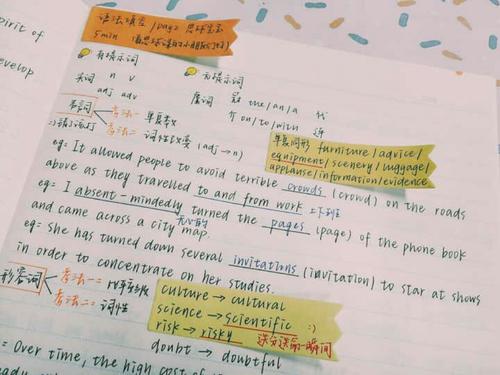 irit of
evelop
语法填空 / page
5min
有提示词
无提示词
实词 n v
虚词 冠 the/an/a 代
adj adv
介 on/to/with 连
名词 考法一 单复数
考法二 词性改变 (adj→n)
单复同形 furniture/advice/
equipment/scenery/luggage/
applause/information/evidence
eg= It allowed people to avoid terrible crowds (crowd) on the roads
above as they travelled to and from work 上下班
eg= I absent-mindedly turned the pages (page) of the phone book
and came across a city map. 心不在焉
eg= She has turned down several invitations (invitation) to star at shows
in order to concentrate on her studies.
形容词 考法一=
考法二= 词性
culture → cultural
science → scientific :)
risk → risky 送分送命一瞬间
doubt → doubtful
= Over time, the high cost of